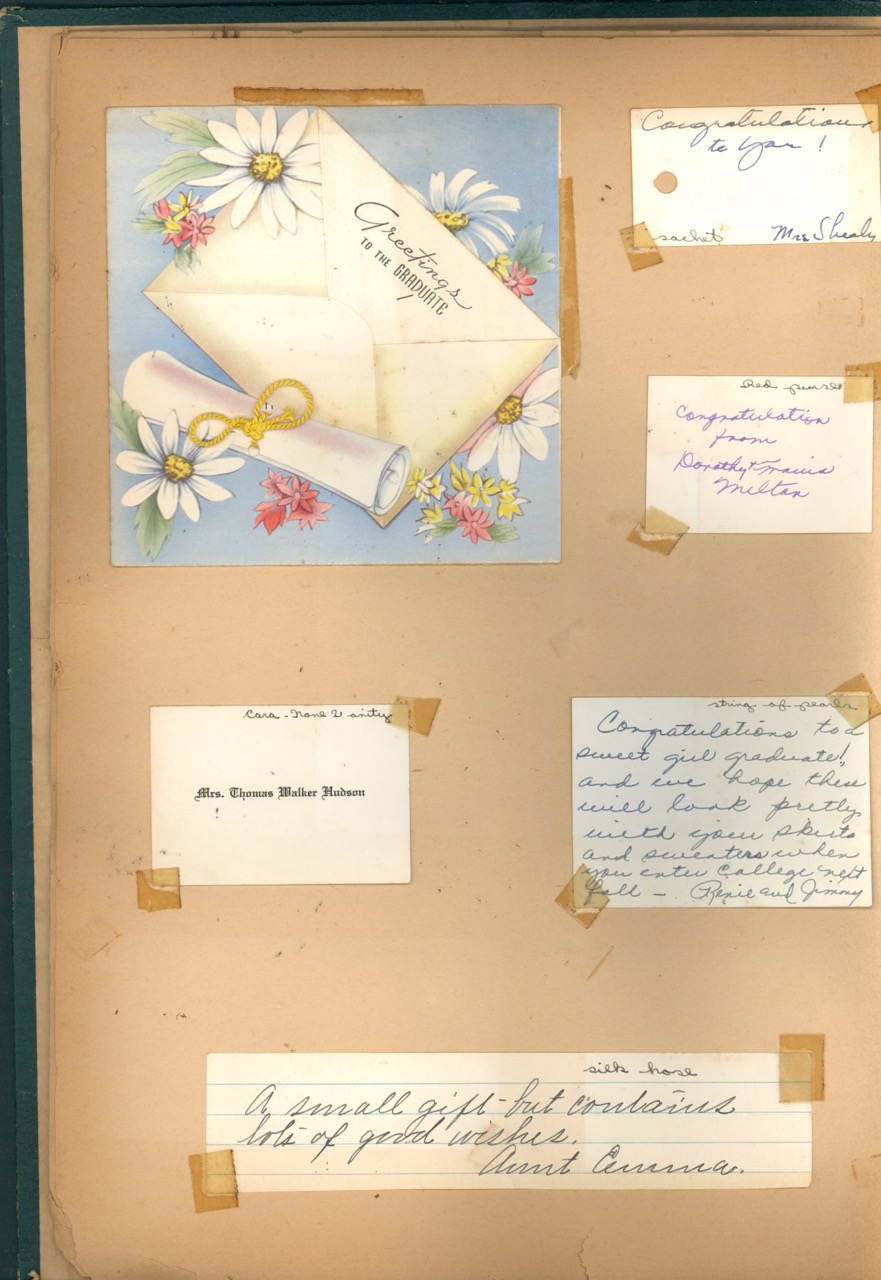 Greetings
TO THE GRADUATE
Congratulations
to you!
sachet Mrs Shealy
Red purse
Congratulation
from
Dorothy +
Milton
Cara
Mrs. Thomas Walker Hudson
string of pearls
Congratulations to a
sweet girl graduate!,
and we hope these
will look pretty
with your skirts
and sweaters when
you enter College next
fall - Renie and Jimmy
silk hose
A small gift - but contains
lots of good wishes.
Aunt Emma.